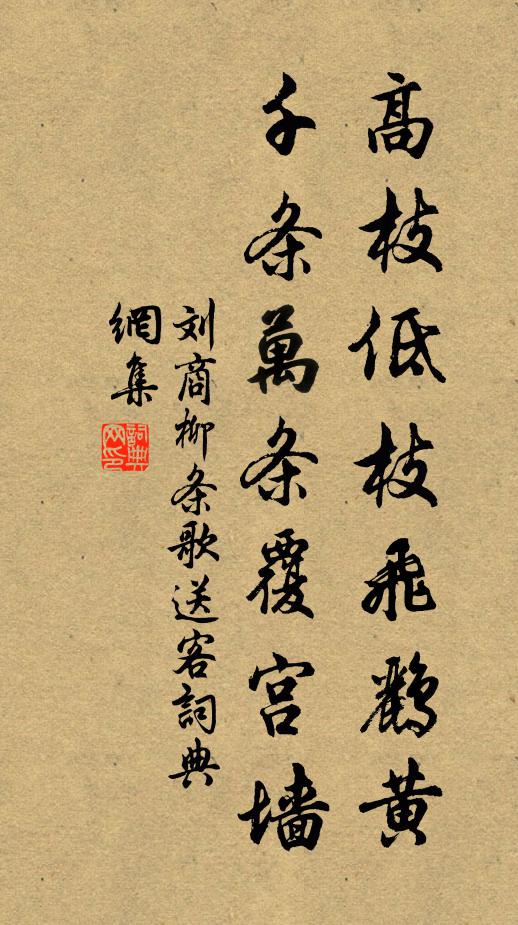 高枝低枝飛鸝黄
千条萬条覆宫墙
刘商柳条歌送客詞典
網集
詞典網印